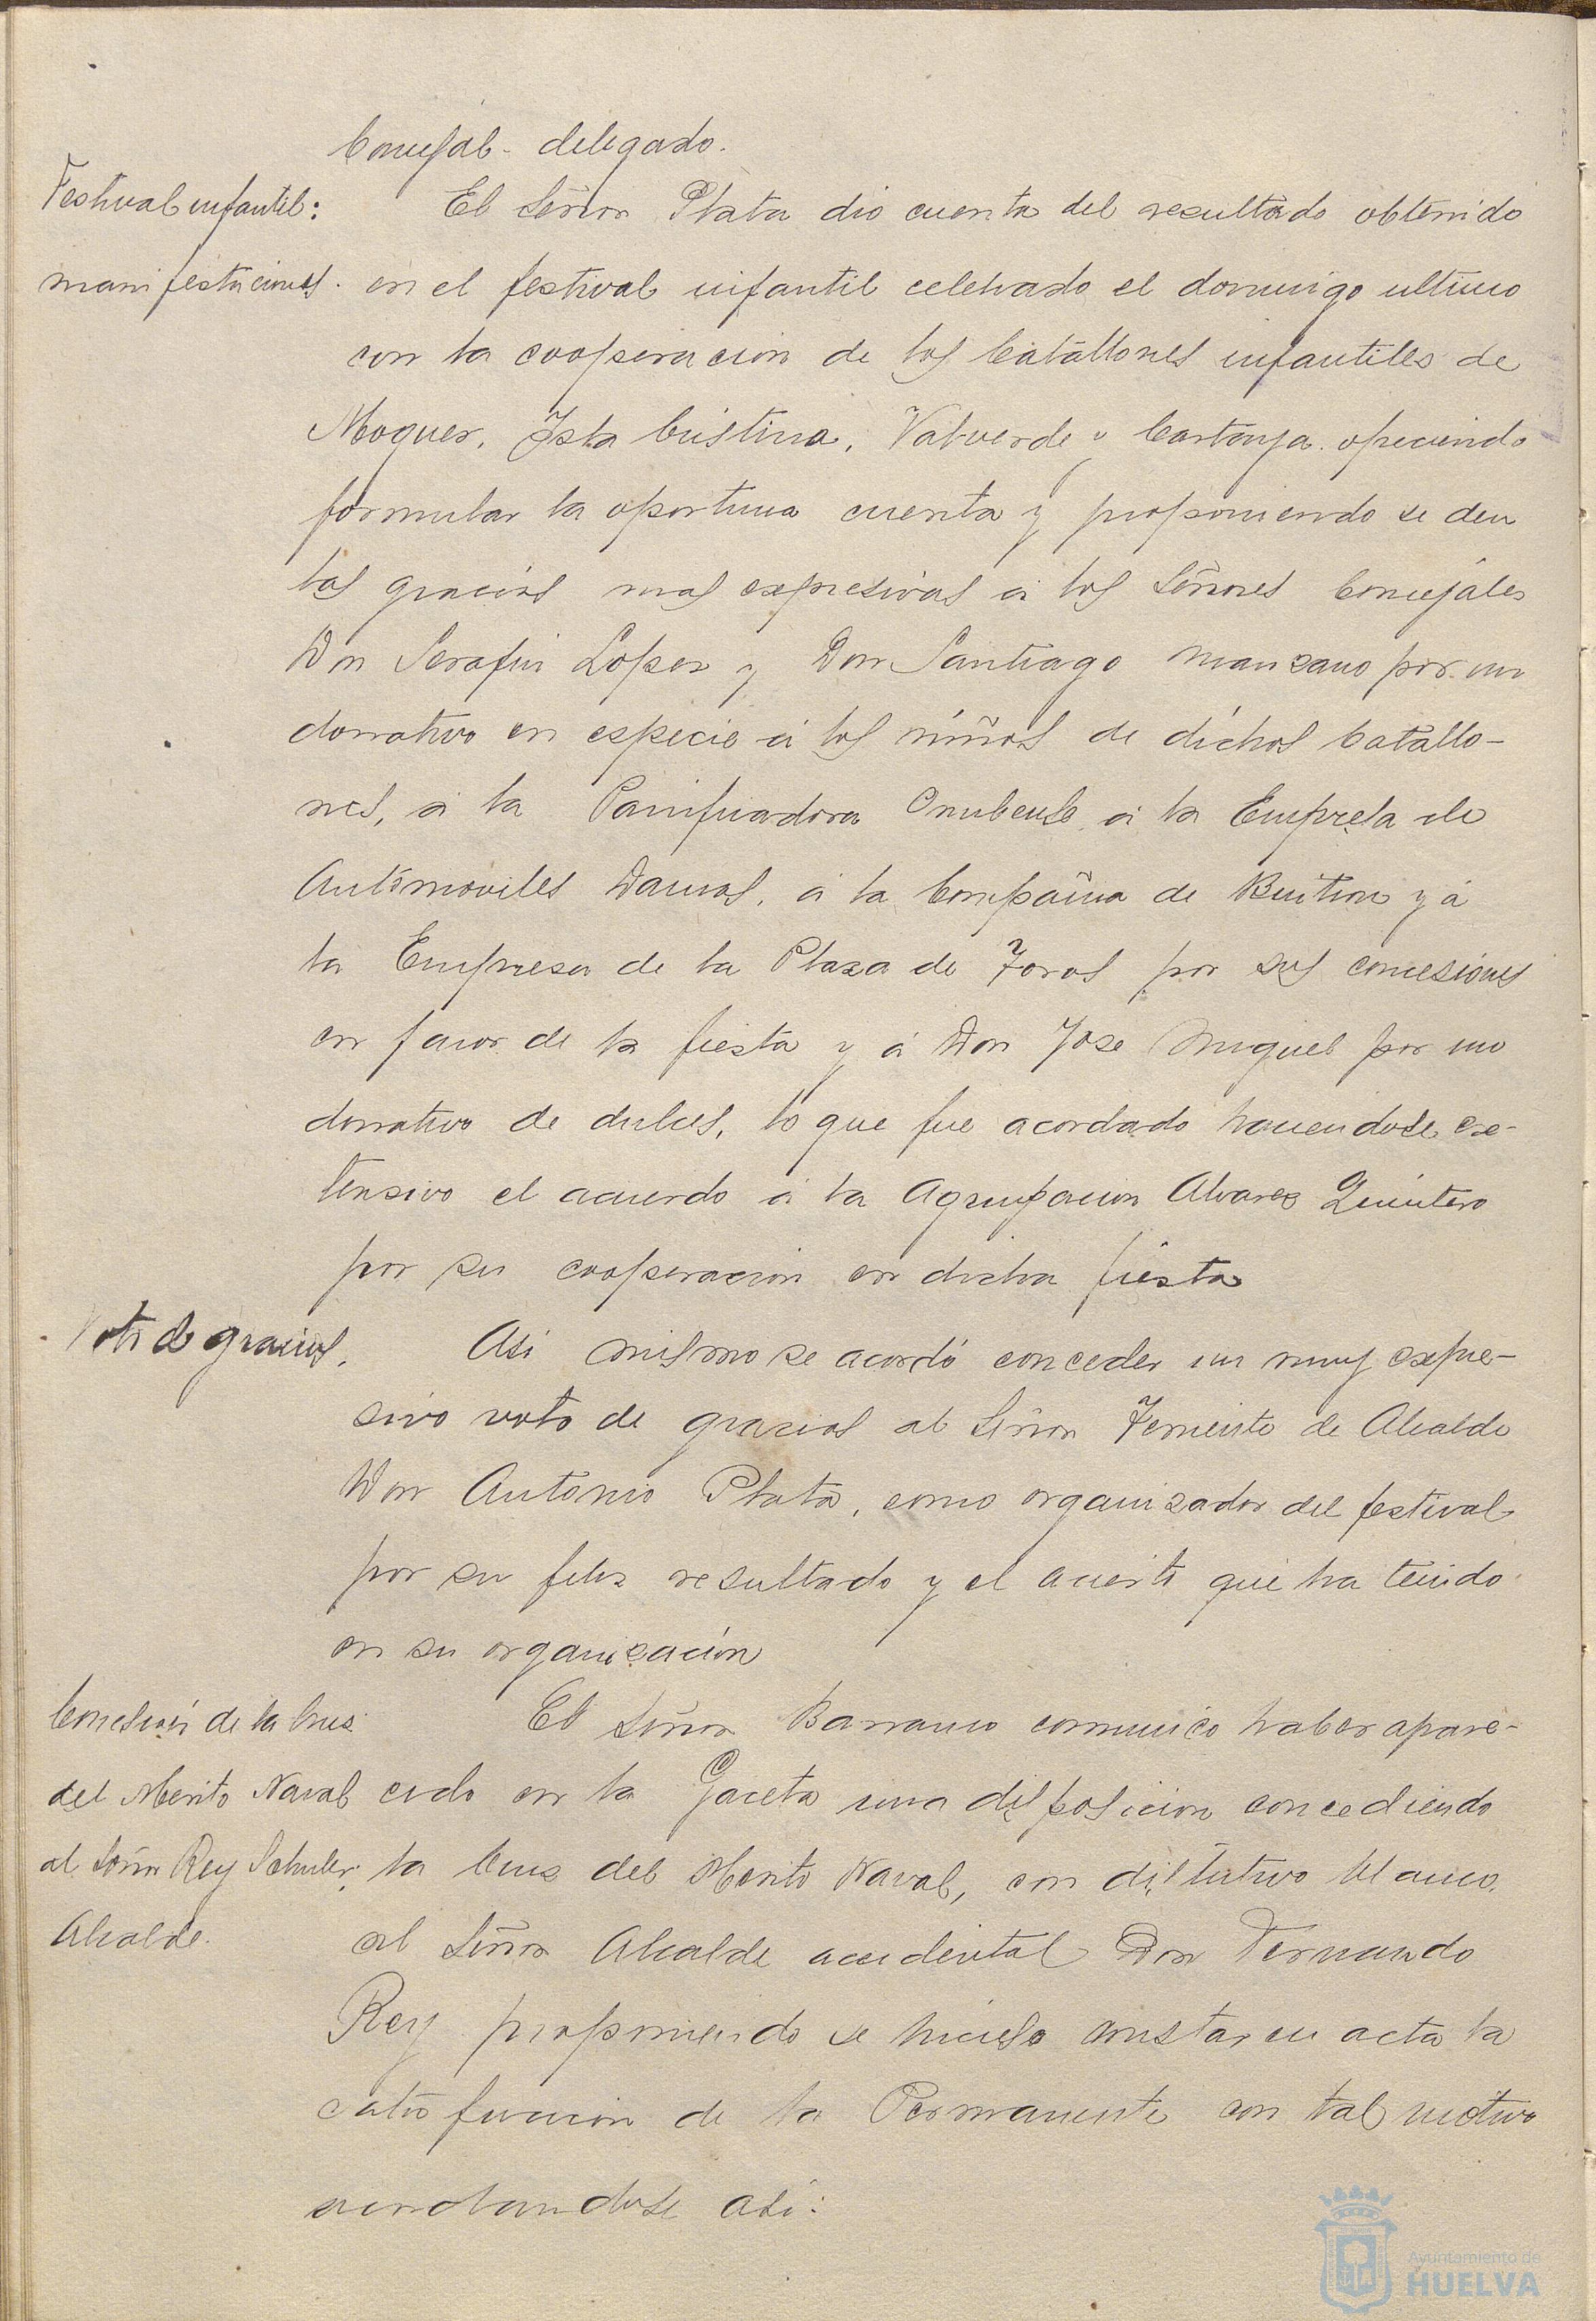 Concejal-delegado.
Festival infantil:
manifestaciones.
El Señor Plata dio cuenta del resultado obtenido
en el festival infantil celebrado el domingo ultimo
con la cooperacion de los batallones infantiles de
Moguer, Isla Cristina, Valverde y Cartaya ofreciendo
formular la oportuna cuenta y proponiendo se den
las gracias mas expresivas á los Señores Concejales
Don Serafin Lopez y Don Santiago Manzano por un
donativo en especie á los niños de dichos batallo-
nes, á la Panificadora Onubense, á la Empresa de
Automoviles Damas, á la Compañia de Buitron y á
la Empresa de la Plaza de Toros por sus concesiones
en favor de la fiesta y á Don Jose Miguel por uno
donativo de dulces, lo que fue acordado haciendose ex-
tensivo el acuerdo á la Agrupacion Alvarez Quintero
por su cooperacion en dicha fiesta
Voto de gracias.
Asi mismo se acordó conceder un muy expre-
sivo voto de gracias al Señor Teniente de Alcalde
Don Antonio Plata, como organizador del festival
por su feliz resultado y el acierto que ha tenido
en su organización
Concesión de la Cruz
del Merito Naval
al Señor Rey Schuler,
Alcalde.
El Señor Barranco comunicó haber apare-
cido en la Gaceta una disposicion concediendo
la Cruz del Merito Naval, con distintivo blanco,
al Señor Alcalde accidental Don Fernando
Rey proponiendo se hiciese constar en acta la
satisfaccion de la Permanente con tal motivo
acordandose asi:
Ayuntamiento de
HUELVA